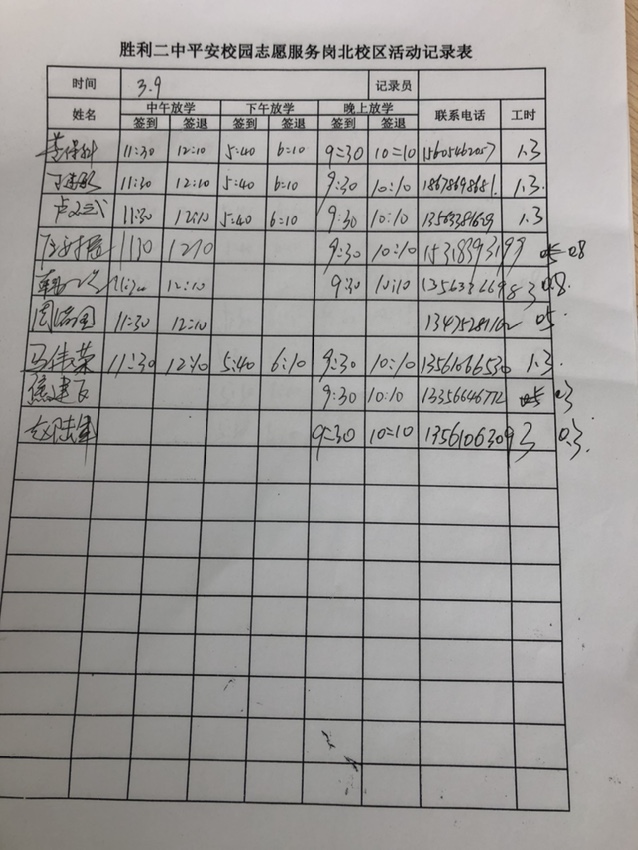 胜利二中平安校园志愿服务岗北校区活动记录表
时间 3.9 记录员
姓名 中午放学 下午放学 晚上放学 联系电话 工时
签到 签退 签到 签退 签到 签退
11:30 12:10 5:40 6:10 9:30 10:10 15605462057 1.3
11:30 12:10 5:40 6:10 9:30 10:10 18678698681 1.3
卢文武 11:30 12:10 5:40 6:10 9:30 10:10 1.3
1130 1210 9:30 10:10 15318393199 0.8
11:30 12:10 9:30 10:10 0.8
11:30 12:10 05
马伟荣 11:30 12:10 5:40 6:10 9:30 10:10 13561066530 1.3
焦建飞 9:30 10:10 13356646772 0.3
赵陆军 9:30 10:10 13561063093 0.3